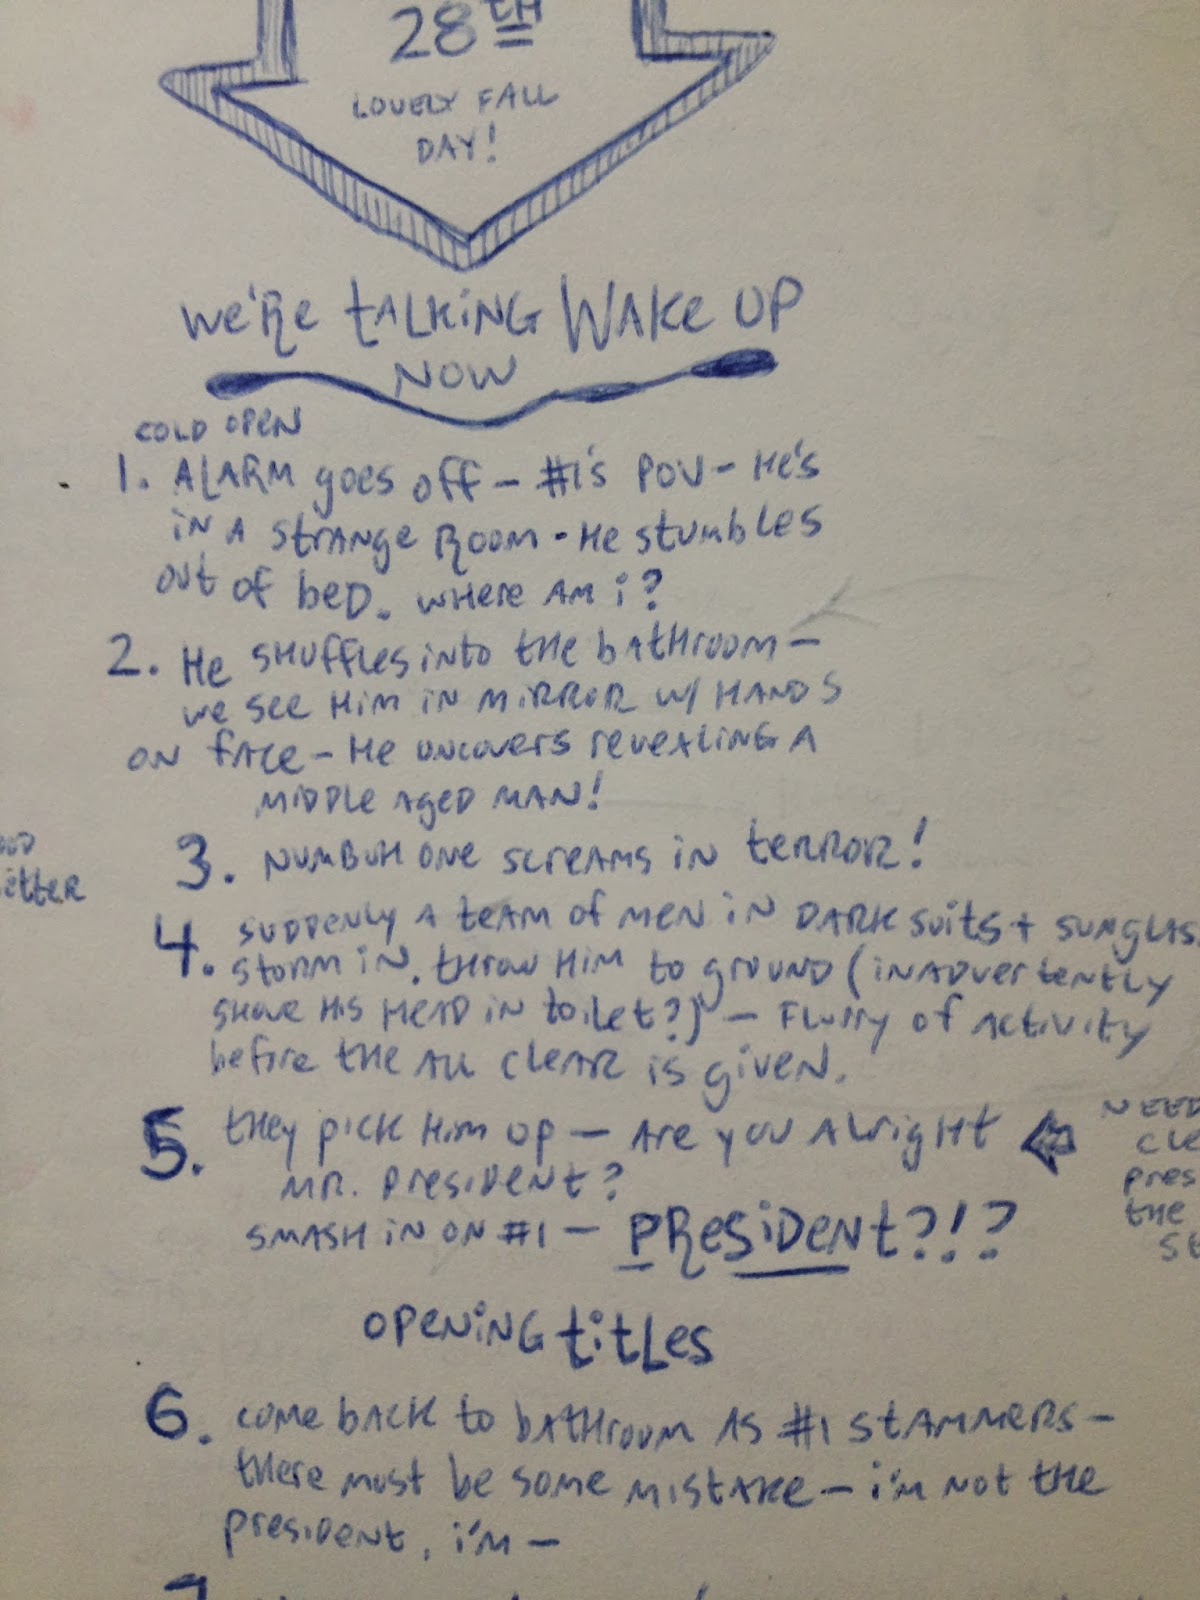 28TH
LOVELY FALL
DAY!
WE'RE TALKING WAKE UP
NOW
COLD OPEN
1. ALARM goes off - #1's POV - He's
in A strange Room - He stumbles
out of beD. WHere Am i?
2. He SHuffles into tHe bAtHroom -
we see Him in mirror w/ HANDS
on face - He uncovers reveAling A
middle Aged mAN!
3. NUMBUH ONE screAms in terror!
4. suddenly A teAm of men in DARK suits + sunglas
storm in. tHrow Him to ground (inadvertently
sHove His HeAD in toilet?) - Flurry of Activity
before tHe All cleAr is given.
5. tHey pick Him up - Are you Alright
mr. president?
SMASH in on #1 - PResiDENt?!?
NEED
cle
pres
tHe
st
OPENING titles
6. come bAck to bAtHroom As #1 stAmmers -
tHere must be some mistAke - i'm not tHe
president, i'm -
7
etter